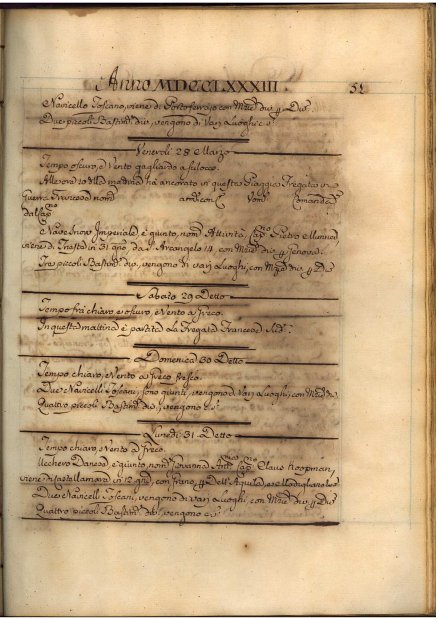 Anno MDCCLXXXIII. 51
Navicello Toscano, viene di Portoferraio con Merc. div. p Div.
Due piccoli Bastim. div. vengono di Varj Luoghi
Venerdì 28 Marzo
Tempo oscuro, e Vento gagliardo a Siloco.
Alle ora 10 della mattina ha ancorato in questa Piaggia Fregata
Guerra Francese nom. arm. con C. Vom. Comand.
dal Cap.
Nave Imperiale è giunto, nom. Cap. Pietro
viene di Trieste in 31 gno, da S. Arcangelo 14 con Merc. div. p Genova.
Tre piccoli Bastim. div. vengono di varj Luoghi, con Merc. div. p Div.
Sabato 29 Detto
Tempo frà chiaro, e oscuro, e Vento a Greco.
In questa mattina è partita La Fregata Francese Sud.
Domenica 30 Detto
Tempo chiaro, e Vento a Greco fresco.
Due Navicelli Toscani, sono giunti, vengono di Varj Luoghi, con Merc. div.
Quattro piccoli Bastim. div. vengono
Lunedì 31 Detto
Tempo chiaro, e Vento a Greco.
Danese è giunto nom. Giovanna Cap. Claus Koopman,
viene di Castellamare in 12 gni, con Grano, p Dell'Aquila,
Due Navicelli Toscani, vengono di varj Luoghi con Merc. div. p Div.
Quattro piccoli Bastim. div. vengono